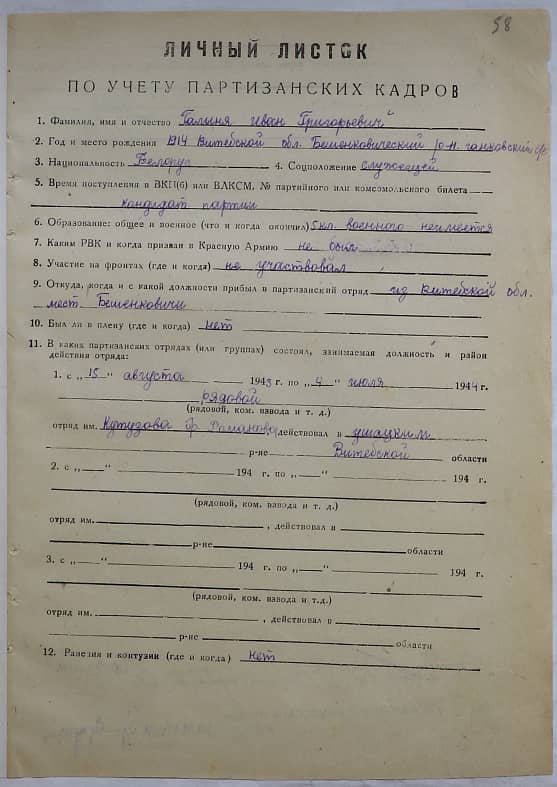 58
ЛИЧНЫЙ ЛИСТОК
ПО УЧЕТУ ПАРТИЗАНСКИХ КАДРОВ
1. Фамилия, имя и отчество Галыня Иван Григорьевич
2. Год и место рождения 1914 Витебской обл. Бешенковический р-н.
3. Национальность Белорус 4. Соцположение служащей
5. Время поступления в ВКП(б) или ВЛКСМ, № партийного или комсомольского билета —
кандидат партии
6. Образование: общее и военное (что и когда окончил) 5 кл. военного неимеется
7. Каким РВК и когда призван в Красную Армию не был
8. Участие на фронтах (где и когда) не участвовал
9. Откуда, когда и с какой должности прибыл в партизанский отряд из Витебской обл.
мест. Бешенковичи
10. Был ли в плену (где и когда) нет
11. В каких партизанских отрядах (или группах) состоял, занимаемая должность и район
действия отряда:
1. с „15“ августа 1943 г. по „4“ июля 1944 г.
рядовой
(рядовой, ком. взвода и т. д.)
отряд им. Кутузова бр. Романова действовал в ушацким
р-не Витебской области
2. с „—“ 194 г. по „—“ 194 г.
(рядовой, ком. взвода и т. д.)
отряд им. , действовал в
р-не области
3. с „—“ 194 г. по „—“ 194 г.
(рядовой, ком. взвода и т.д.)
отряд им. , действовал в
р-не области
12. Ранения и контузии (где и когда) нет